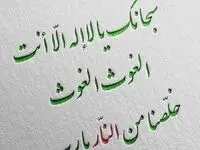 سبحانک یا لا إله الّا أنت
الغوث الغوث
خلّصنا من النّار یا رب